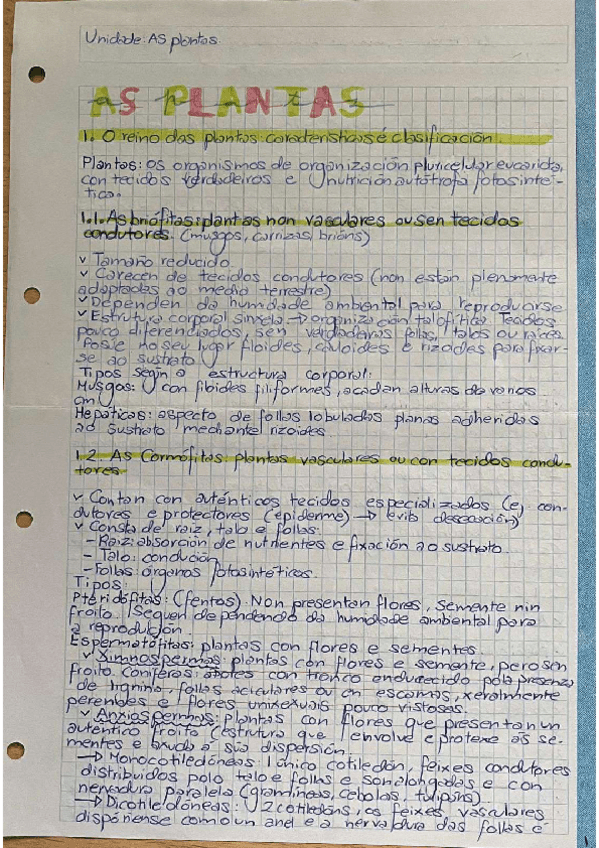 Unidade: AS plantas
AS PLANTAS
1. O reino das plantas: características e clasificación.
Plantas: os organismos de organización pluricelular eucariota,
con tecidos verdadeiros e nutrición autótrofa fotosinté-
tica.
1.1. As briófitas: plantas non vasculares ou sen tecidos
condutores. (musgos, carrizas, brións)
v Tamaño reducido
v Carecen de tecidos condutores (non están plenamente
adaptadas ao medio terrestre)
v Dependen da humidade ambiental para reproducirse
v Estrutura corporal sinxela → organización talofítica. Tecidos
pouco diferenciados, sen verdadeiras follas, talos ou raíces.
Posúe no seu lugar filoides, cauloides e rizoides para fixar-
se ao sustrato
Tipos según a estructura corporal:
Musgos: con filoides filiformes, acadan alturas de varios
cm
Hepáticas: aspecto de follas lobuladas planas adheridas
ao sustrato mediante rizoides
1.2. As Cormófitas: plantas vasculares ou con tecidos condu-
tores.
v Contan con auténticos tecidos especializados (ej. con-
dutores e protectores (epiderme) → evita desecación)
v Consta de raíz, talo e follas.
- Raíz: absorción de nutrientes e fixación ao sustrato.
- Talo: condución
- Follas: órganos fotosintéticos.
Tipos:
Pteridófitas: (fentos). Non presentan flores, semente nin
froito. Seguen dependendo da humidade ambiental para
a reprodución.
Espermatófitas: plantas con flores e sementes.
v Ximnospermas: plantas con flores e semente, pero sen
froito coníferas: árbores con tronco endurecido pola presenza
de lignina, follas aciculares ou en escamas, xeralmente
perennes e flores unixexuais pouco vistosas.
v Anxiospermas: plantas con flores que presentan un
auténtico froito (estrutura que envolve e protexe ás se-
mentes e axuda á súa dispersión.
→ Monocotiledóneas: 1 único cotiledón, feixes condutores
distribuidos polo talo e follas e son alongadas e con
nervadura paralela (gramíneas, cebolas, tulipáns).
→ Dicotiledóneas: 2 cotiledóns, os feixes vasculares
dispóñense como un anel e a nervadura das follas é